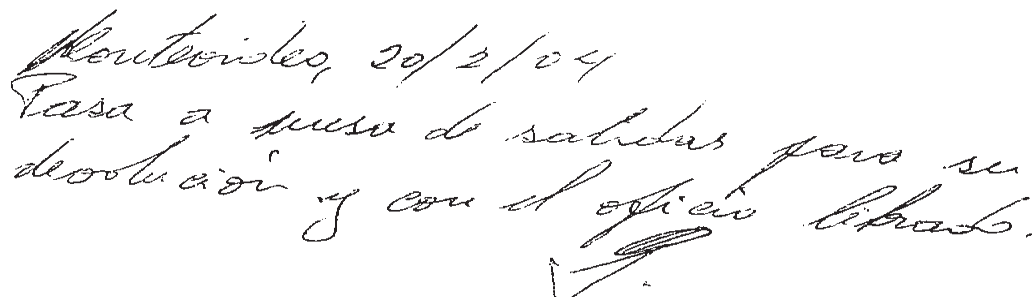 Montevideo, 20/2/04
Pasa a mesa de salidas para su
devolución y con el oficio librado.